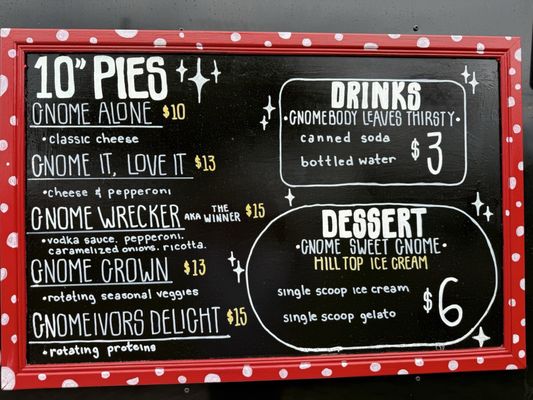 10" PIES
GNOME ALONE $10
• classic cheese
GNOME IT, LOVE IT $13
• cheese & pepperoni
GNOME WRECKER AKA THE WINNER $15
• vodka sauce, pepperoni, caramelized onions, ricotta.
GNOME GROWN $13
• rotating seasonal veggies
GNOMEIVORS DELIGHT $15
• rotating proteins
DRINKS
• GNOMEBODY LEAVES THIRSTY •
canned soda
bottled water
$3
DESSERT
• GNOME SWEET GNOME •
HILL TOP ICE CREAM
single scoop ice cream
single scoop gelato
$6